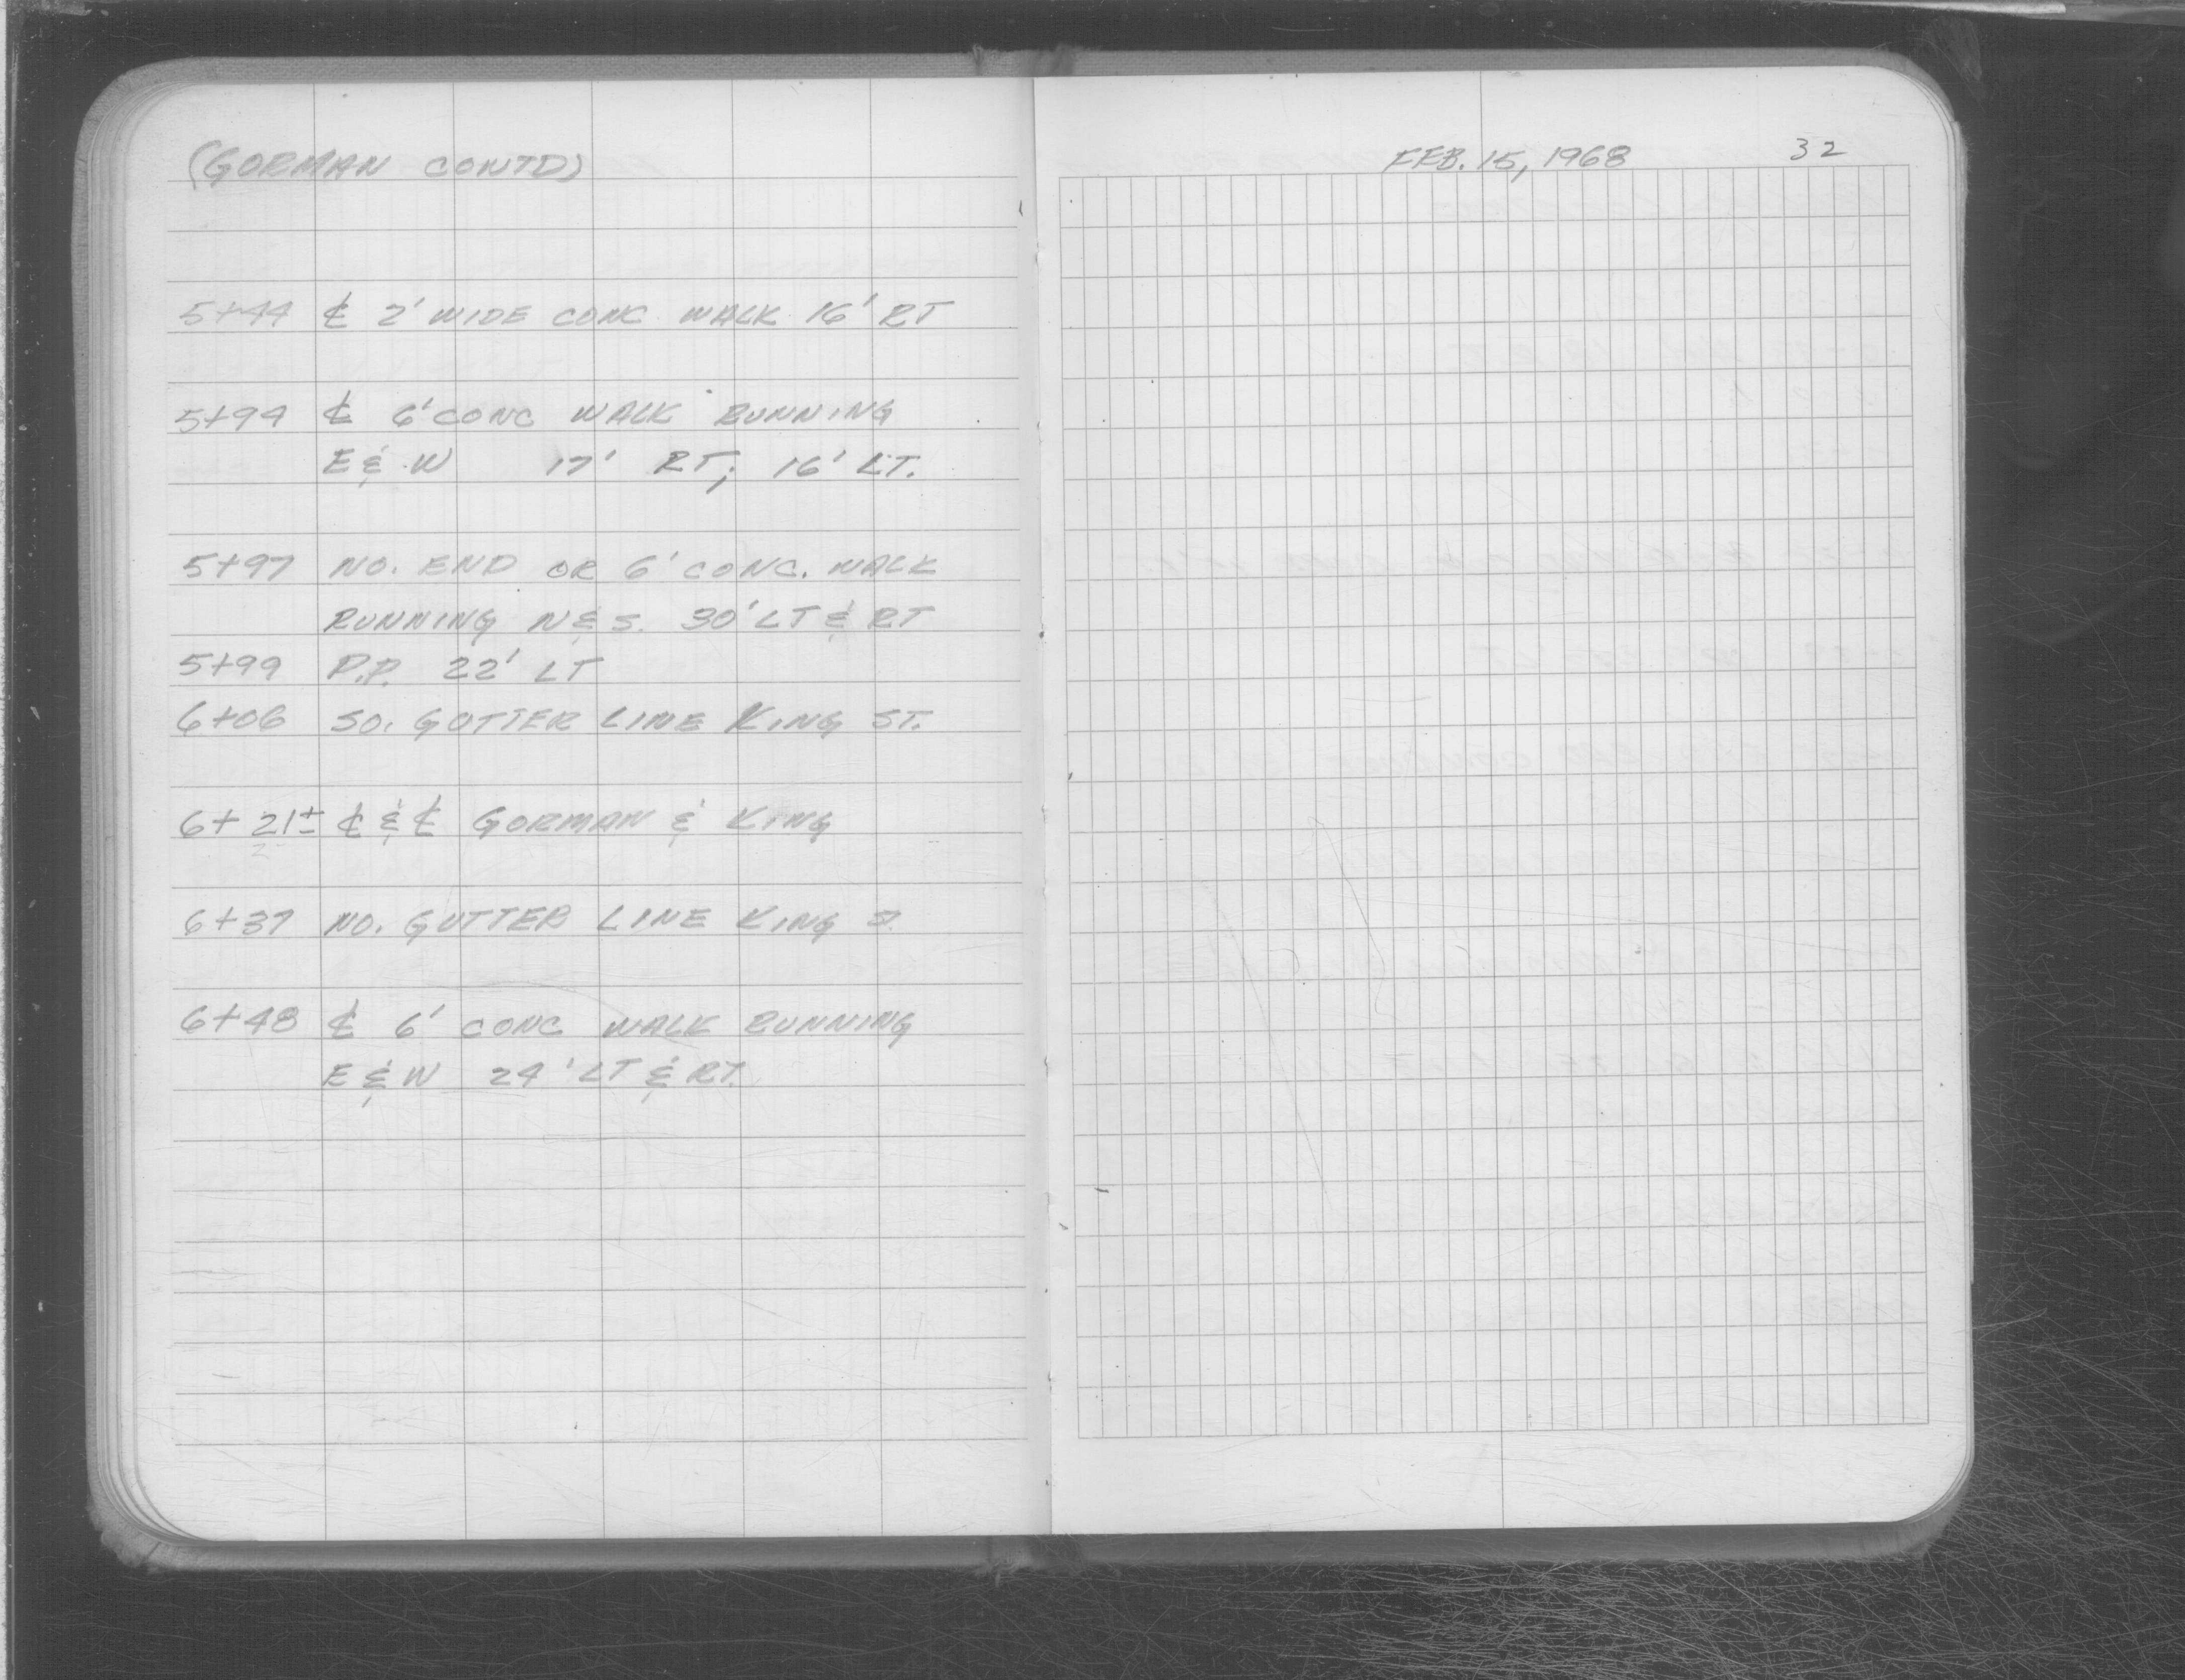 (GORMAN CONTD)
FEB. 15, 1968 32
5+44 ℄ 2' WIDE CONC WALK 16' RT
5+94 ℄ 6' CONC WALK RUNNING
E & W 17' RT; 16' LT.
5+97 NO. END OR 6' CONC. WALK
RUNNING N & S. 30' LT & RT
5+99 P.P. 22' LT
6+06 SO. GUTTER LINE KING ST.
6+21± ℄ & ℄ GORMAN & KING
6+37 NO. GUTTER LINE KING ST.
6+48 ℄ 6' CONC WALK RUNNING
E & W 24' LT & RT.